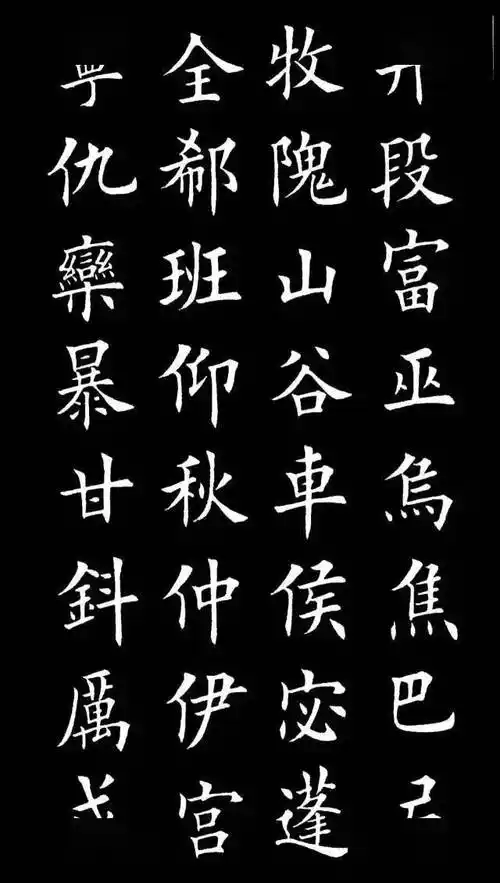 段富巫烏焦巴
牧隗山谷車侯宓蓬
全郗班仰秋仲伊宮
仇欒暴甘鈄厲